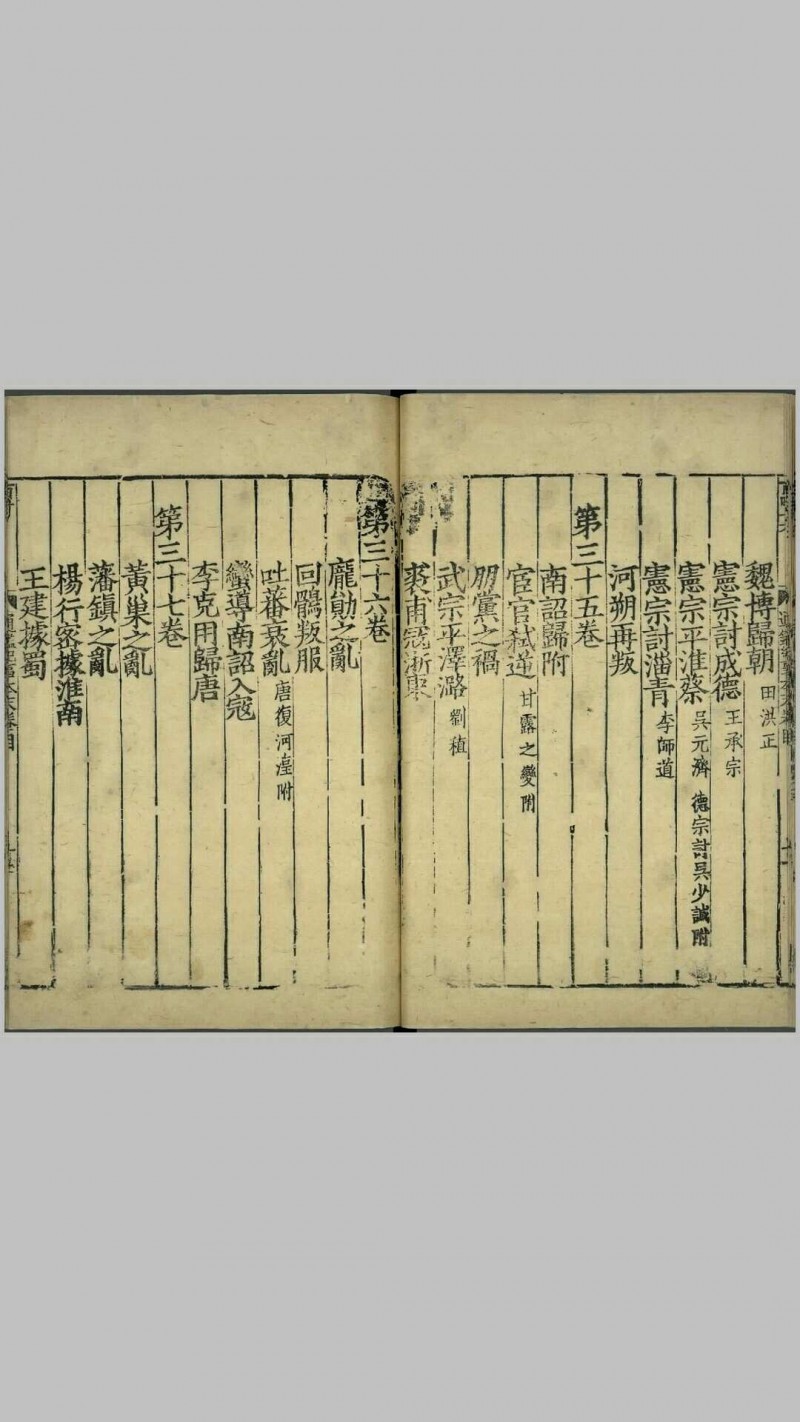 魏博歸朝 田洪正
憲宗討成德 王承宗
憲宗平淮蔡 吳元濟 德宗討吳少誠附
憲宗討淄青 李師道
河朔再叛
第三十五卷
南詔歸附
宦官弒逆 甘露之變附
朋黨之禍
武宗平澤潞 劉稹
裘甫寇浙東
第三十六卷
龐勛之亂
回鶻叛服
吐蕃衰亂 唐復河湟附
蠻導南詔入寇
李克用歸唐
第三十七卷
黃巢之亂
藩鎮之亂
楊行密據淮南
王建據蜀